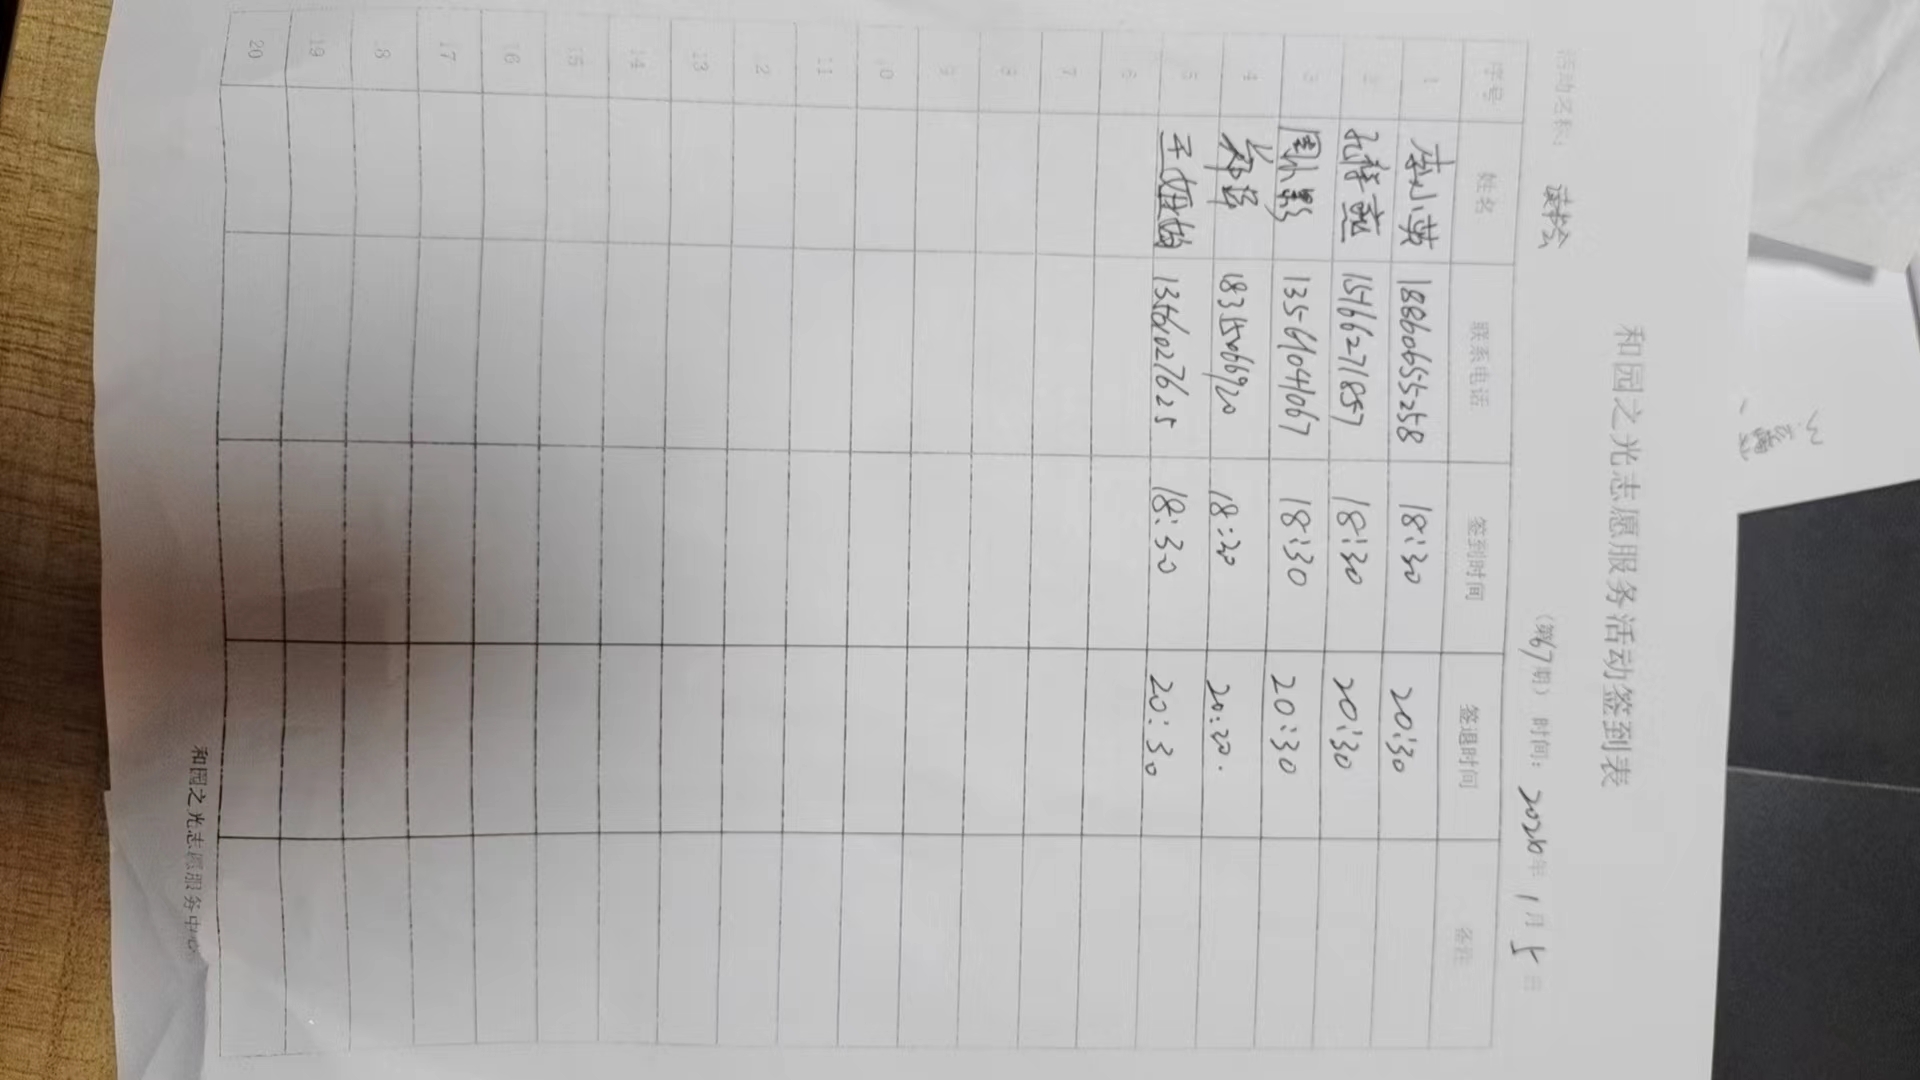 和园之光志愿服务活动签到表
活动名称: 读书会 (第67期) 时间: 2026年1月5日
序号 姓名 联系电话 签到时间 签退时间 备注
1 李小英 18860655258 18:30 20:30
2 15166271857 18:30 20:30
3 周小影 13561041067 18:30 20:30
4 18315066920 18:20 20:20.
5 13561027625 18:30 20:30
6
7
8
9
10
11
12
13
14
15
16
17
18
19
20
和园之光志愿服务中心